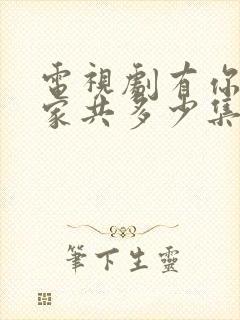 電視劇有你
家共多少集
筆下生靈